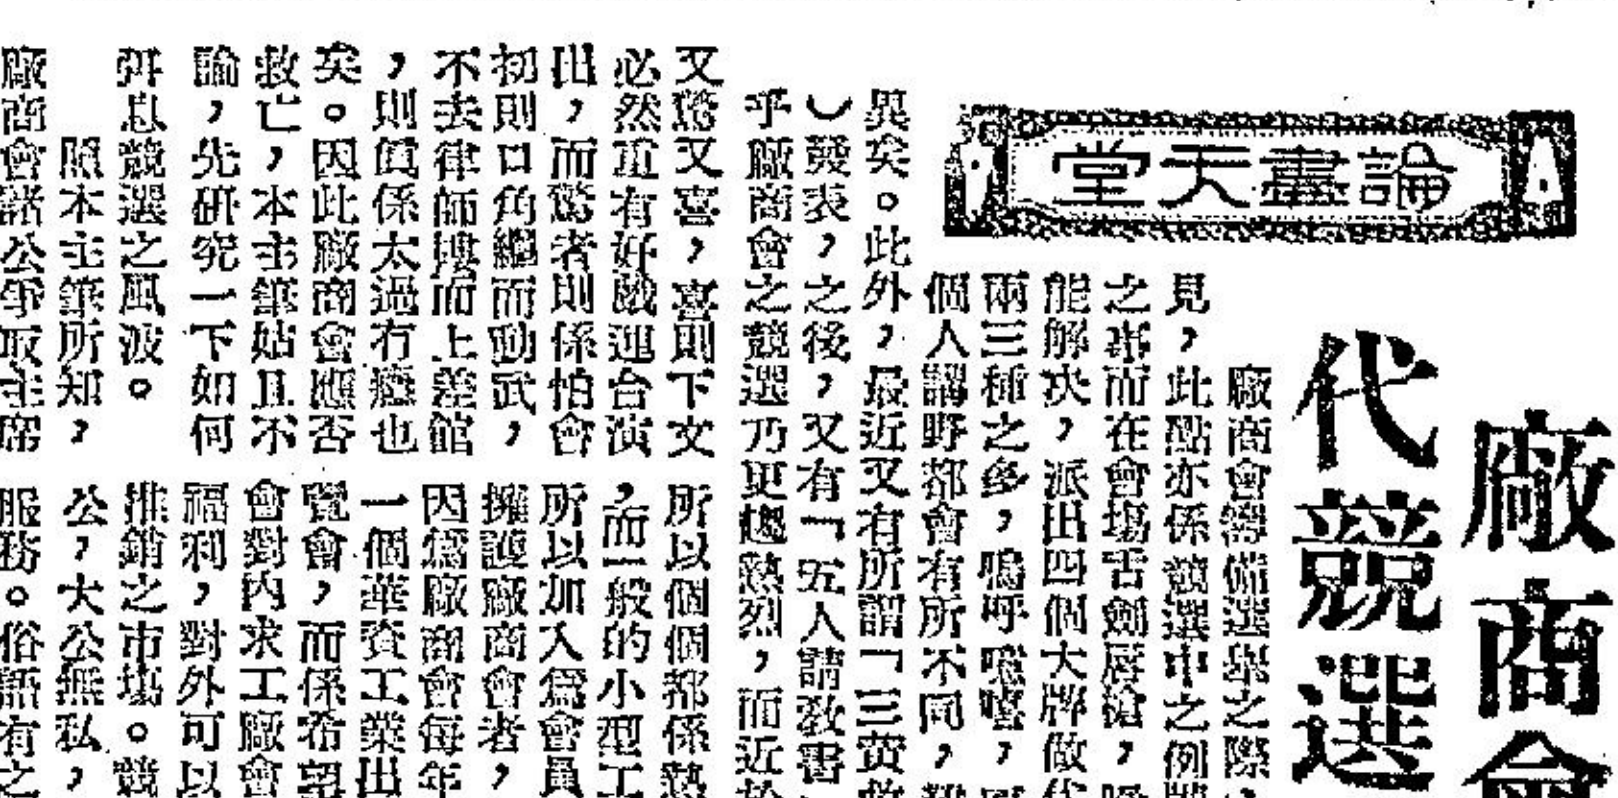 論盡天堂
廠商會
代競選
廠商會籌備選舉之際
見，此點亦係競選中之例
之事而在會場舌劍唇槍，
能解决，派出四個大牌做代
兩三種之多，嗚呼噫嘻，
個人講野都會有所不同，
異矣。此外，最近又有所謂「三資救
︶發表，之後，又有「五人請教書
乎廠商會之競選乃更趨熱烈，而近
又驚又喜，喜則下文
必然重有好戲連台演
出，而驚者則係怕會
初則口角繼而動武，
不去律師樓而上差館
，則眞係太過冇癮也
矣。因此廠商會應否
救亡，本主筆姑且不
論，先研究一下如何
弭息競選之風波。
照本主筆所知，
廠商會諸公爭取主席
所以個個都係熱
，而一般的小型工
所以加入爲會員
擁護廠商會者，
因爲廠商會每年
一個華資工業出
覽會，而係希望
會對內求工廠會
福利，對外可以
推銷之市塲。競
公，大公無私，
服務。俗語有之